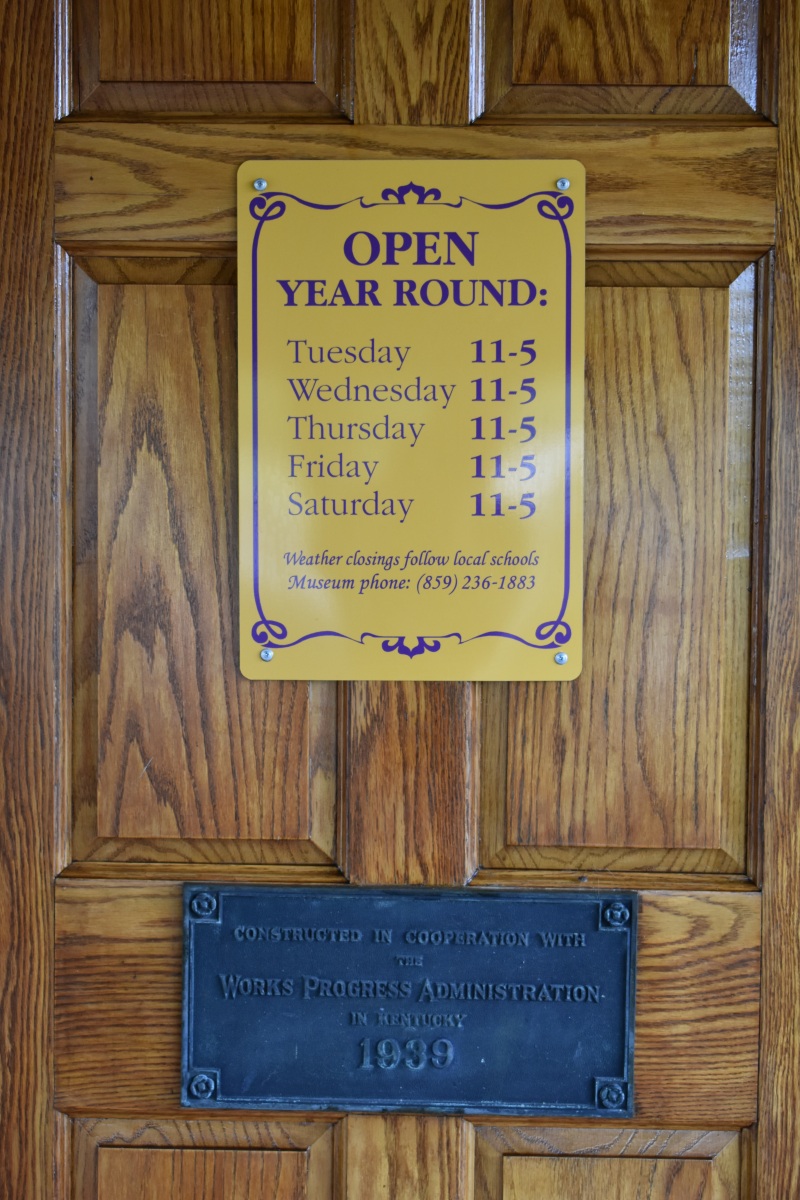 OPEN
YEAR ROUND:
Tuesday 11-5
Wednesday 11-5
Thursday 11-5
Friday 11-5
Saturday 11-5
Weather closings follow local schools
Museum phone: (859) 236-1883
CONSTRUCTED IN COOPERATION WITH
THE
WORKS PROGRESS ADMINISTRATION
IN KENTUCKY
1939